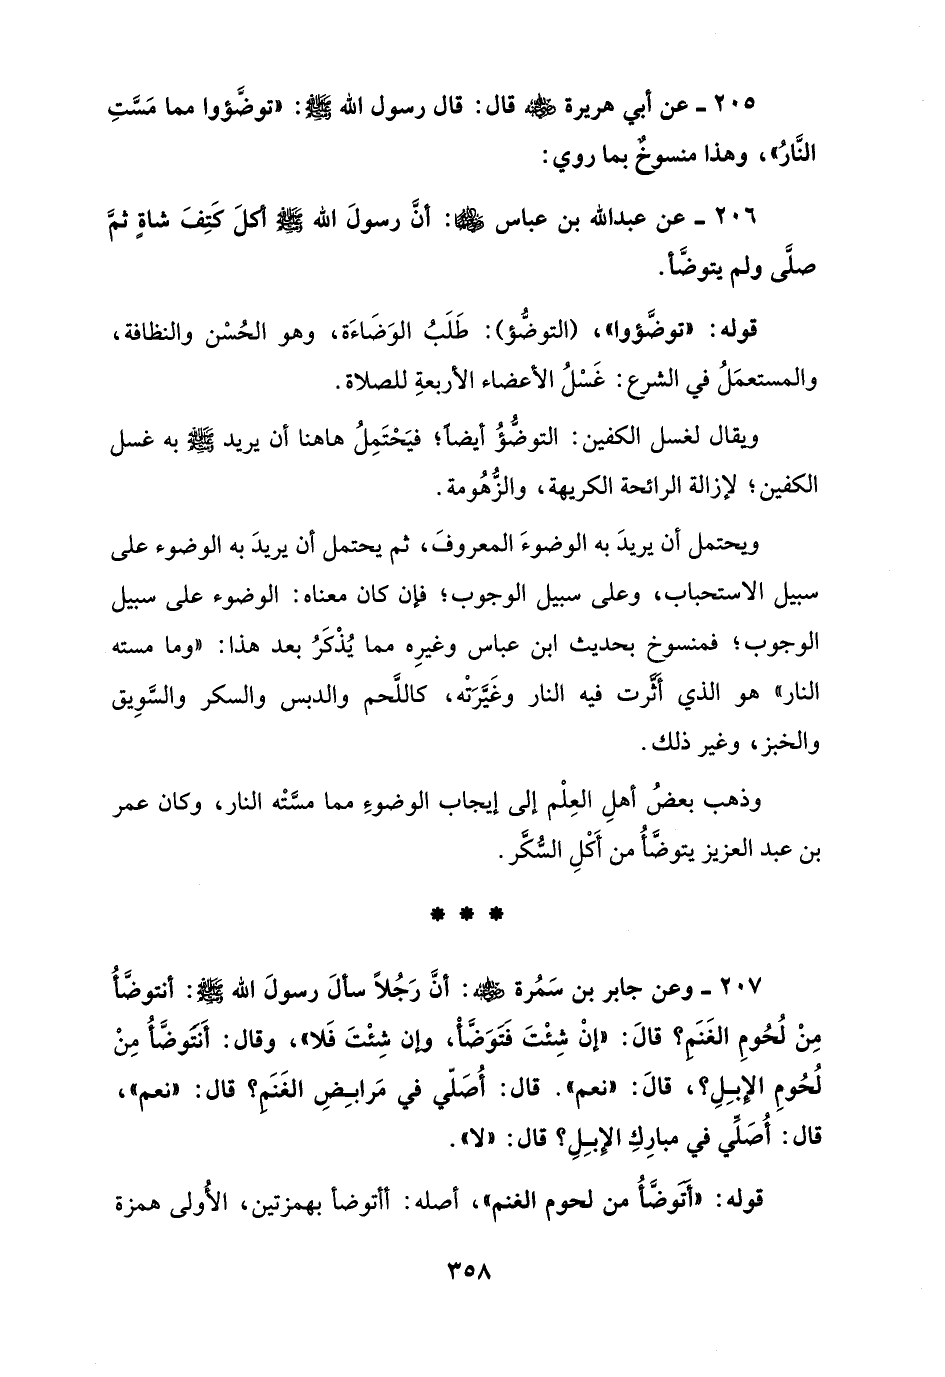 ٢٠٥ ـ عن أبي هريرة ﵁ قال: قال رسول الله ﷺ: «توضَّؤوا مما مَسَّتِ
النَّارُ»، وهذا منسوخٌ بما روي:
٢٠٦ ـ عن عبدالله بن عباس ﵄: أنَّ رسولَ الله ﷺ أكلَ كَتِفَ شاةٍ ثمَّ
صلَّى ولم يتوضَّأ.
قوله: «توضَّؤوا»، (التوضُّؤ): طَلَبُ الوَضَاءَة، وهو الحُسْن والنظافة،
والمستعمَلُ في الشرع: غَسْلُ الأعضاء الأربعةِ للصلاة.
ويقال لغسل الكفين: التوضُّؤُ أيضاً؛ فيَحْتَمِلُ هاهنا أن يريد ﷺ به غسل
الكفين؛ لإزالة الرائحة الكريهة، والزُّهُومة.
ويحتمل أن يريدَ به الوضوءَ المعروفَ، ثم يحتمل أن يريدَ به الوضوء على
سبيل الاستحباب، وعلى سبيل الوجوب؛ فإن كان معناه: الوضوء على سبيل
الوجوب؛ فمنسوخ بحديث ابن عباس وغيرِه مما يُذْكَرُ بعد هذا: «وما مسته
النار» هو الذي أَثَّرت فيه النار وغَيَّرَتْه، كاللَّحم والدبس والسكر والسَّوِيق
والخبز، وغير ذلك.
وذهب بعضُ أهلِ العِلْم إلى إيجاب الوضوءِ مما مسَّتْه النار، وكان عمر
بن عبد العزيز يتوضَّأُ من أَكْلِ السُّكَّر.
* * *
٢٠٧ ـ وعن جابر بن سَمُرة ﵁: أنَّ رَجُلاً سألَ رسولَ الله ﷺ: أنتوضَّأُ
مِنْ لُحُومِ الغَنَمِ؟ قالَ: «إنْ شِئْتَ فَتَوَضَّأْ، وإن شِئْتَ فَلا»، وقال: أَنَتَوضَّأُ مِنْ
لُحُومِ الإبِلِ؟، قالَ: «نعم». قال: أُصَلّي في مَرابِضِ الغَنَمِ؟ قال: «نعم»،
قال: أُصَلِّي في مبارِكِ الإبِلِ؟ قال: «لا».
قوله: «أَتَوضَّأُ من لحوم الغنم»، أصله: أأتوضأ بهمزتين، الأُولى همزة
٣٥٨